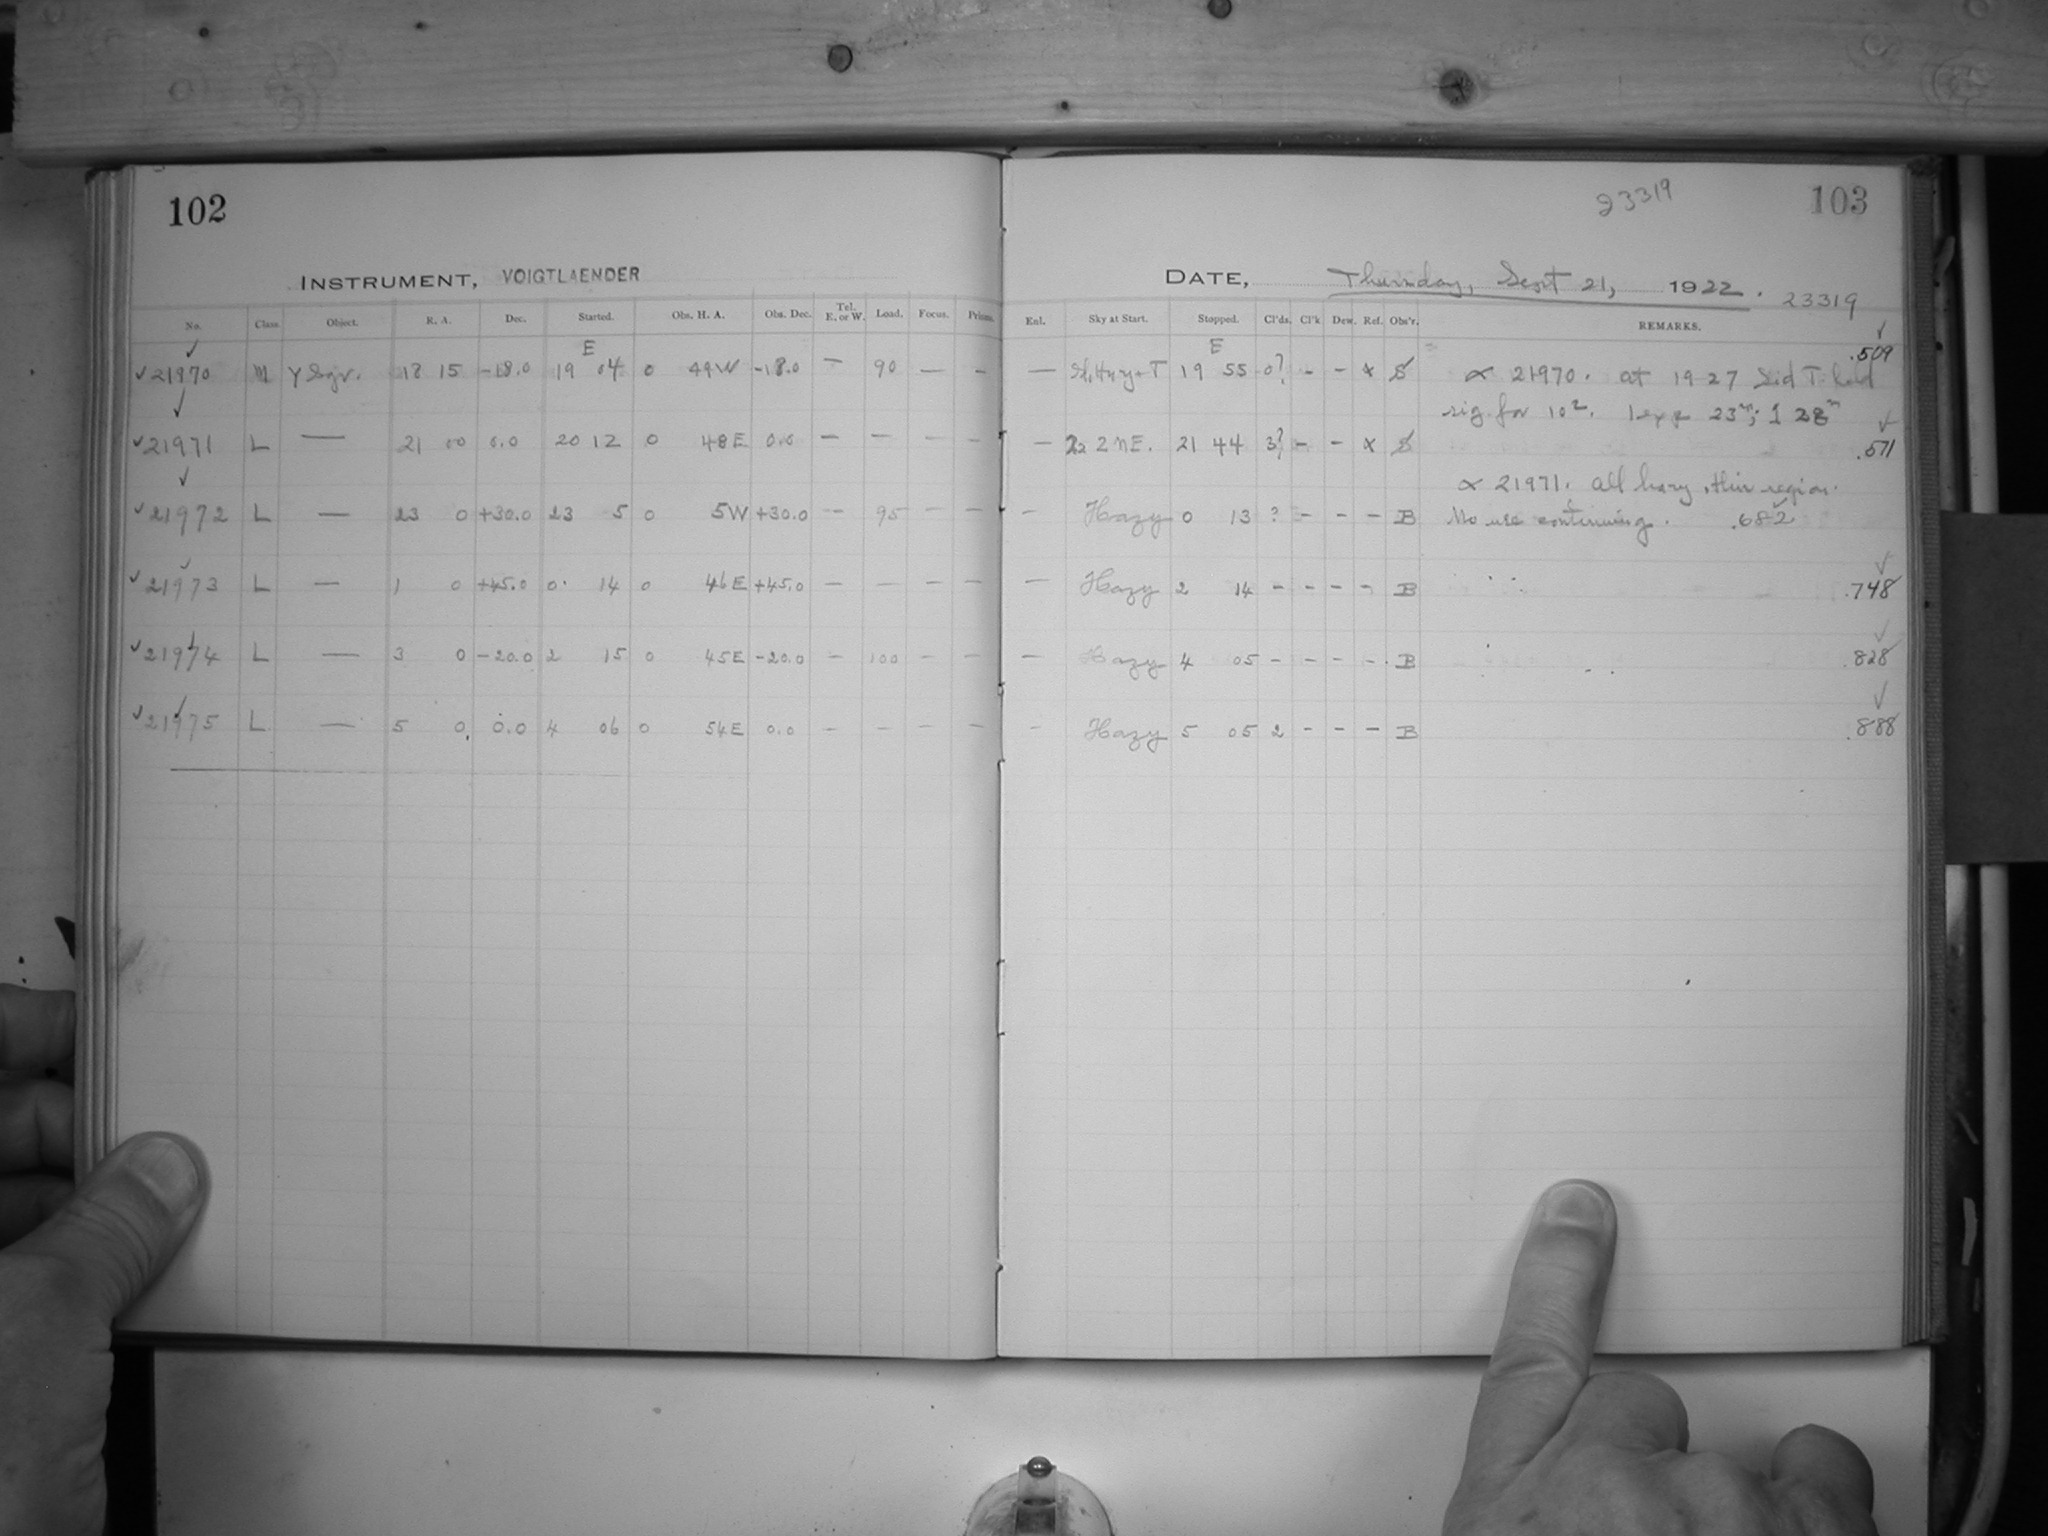 102
INSTRUMENT, VOIGTLAENDER
No. Class. Object. R. A. Dec. Started. Obs. H. A. Obs. Dec. Tel. E. or W. Load. Focus. Prisms.
E
✓21970 M Y Sgr. 18 15 -18.0 19 04 0 49W -18.0 — 90 — —
✓21971 L — 21 00 0.0 20 12 0 48E 0.0 — — — —
✓21972 L — 23 0 +30.0 23 5 0 5W +30.0 — 95 — —
✓21973 L — 1 0 +45.0 0 14 0 46E +45.0 — — — —
✓21974 L — 3 0 -20.0 2 15 0 45E -20.0 — 100 — —
✓21975 L — 5 0 0.0 4 06 0 54E 0.0 — — — —
23319 103
DATE, Thursday, Sept 21, 1922. 23319
Enl. Sky at Start. Stopped. Cl'ds. Cl'k Dew. Ref. Obs'r. REMARKS.
E
.509
— 19 55 0? - - x S ∝ 21970. at 19 27 Sid T had
rig for 10². 1 exp 23ᵐ; 1 28ᵐ
— 2 NE. 21 44 3? - - x S .571
∝ 21971. All hazy, this region.
- Hazy 0 13 ? - - - B No use continuing. .682
— Hazy 2 14 - - - - B .748
— Hazy 4 05 - - - - B .828
- Hazy 5 05 2 - - - B .888